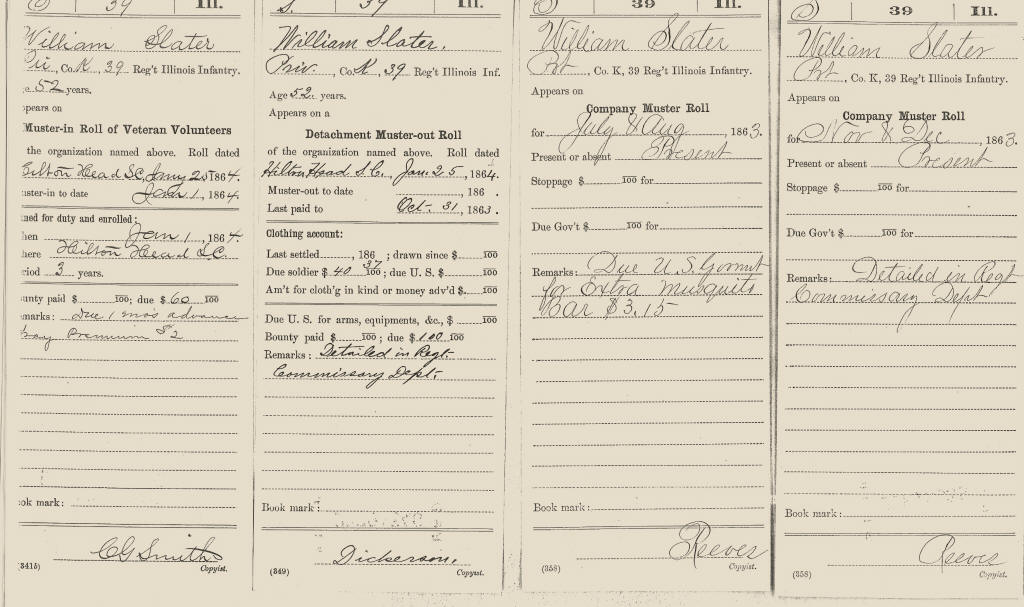 S | 39 | Ill.
William Slater
Co. K, 39 Reg't Illinois Infantry.
52 years.
ppears on
Muster-in Roll of Veteran Volunteers
the organization named above. Roll dated
Hilton Head S.C. Jany 25, 1864.
uster-in to date Jan 1, 1864.
ned for duty and enrolled:
hen Jan 1, 1864.
here Hilton Head S.C.
riod 3 years.
unty paid $ 100; due $ 60 100
marks: Due 1 mos advance
pay Premium $2
ook mark:
C G Smith
(341b) Copyist.
S. | 39 | Ill.
William Slater.
Priv., Co. K, 39 Reg't Illinois Inf.
Age 52 years.
Appears on a
Detachment Muster-out Roll
of the organization named above. Roll dated
Hilton Head S.C., Jan. 25, 1864.
Muster-out to date , 186 .
Last paid to Oct. 31, 1863.
Clothing account:
Last settled , 186 ; drawn since $ 100
Due soldier $ 40 37 100; due U. S. $ 100
Am't for cloth'g in kind or money adv'd $ 100
Due U. S. for arms, equipments, &c., $ 100
Bounty paid $ 100; due $ 100 100
Remarks: Detailed in Regt.
Commissary Dept.
Book mark:
Dickerson,
(349) Copyist.
S | 39 | Ill.
William Slater
Pvt, Co. K, 39 Reg't Illinois Infantry.
Appears on
Company Muster Roll
for July & Aug, 1863.
Present or absent Present
Stoppage $ 100 for
Due Gov't $ 100 for
Remarks: Due U.S. Govmt
for Extra Musquito
Bar $3.15
Book mark:
Reeves
(358) Copyist.
S | 39 | Ill.
William Slater
Pvt, Co. K, 39 Reg't Illinois Infantry.
Appears on
Company Muster Roll
for Nov & Dec, 1863.
Present or absent Present
Stoppage $ 100 for
Due Gov't $ 100 for
Remarks: Detailed in Regt
Commissary Dept
Book mark:
Reeves
(358) Copyist.